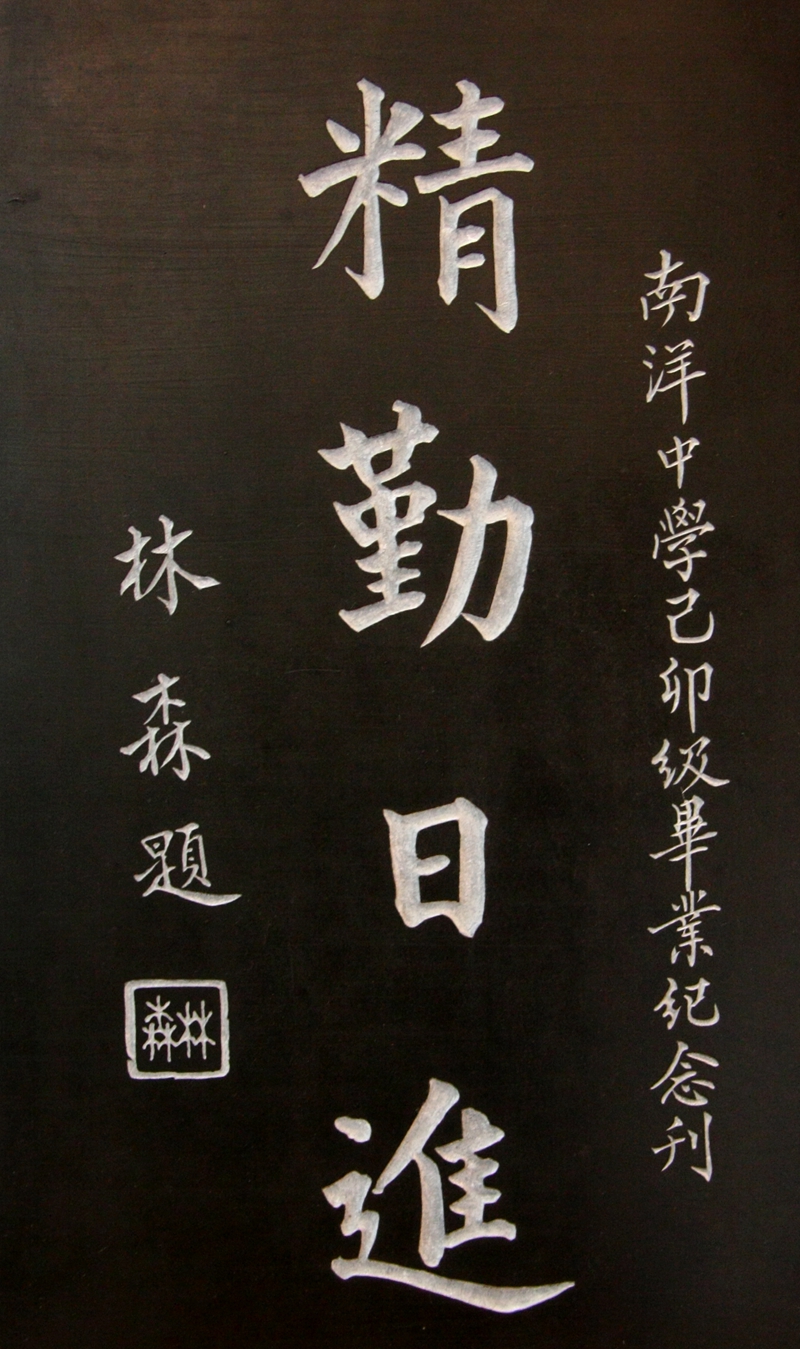 南洋中學己卯级畢業紀念刊
精勤日進
林森題
林森